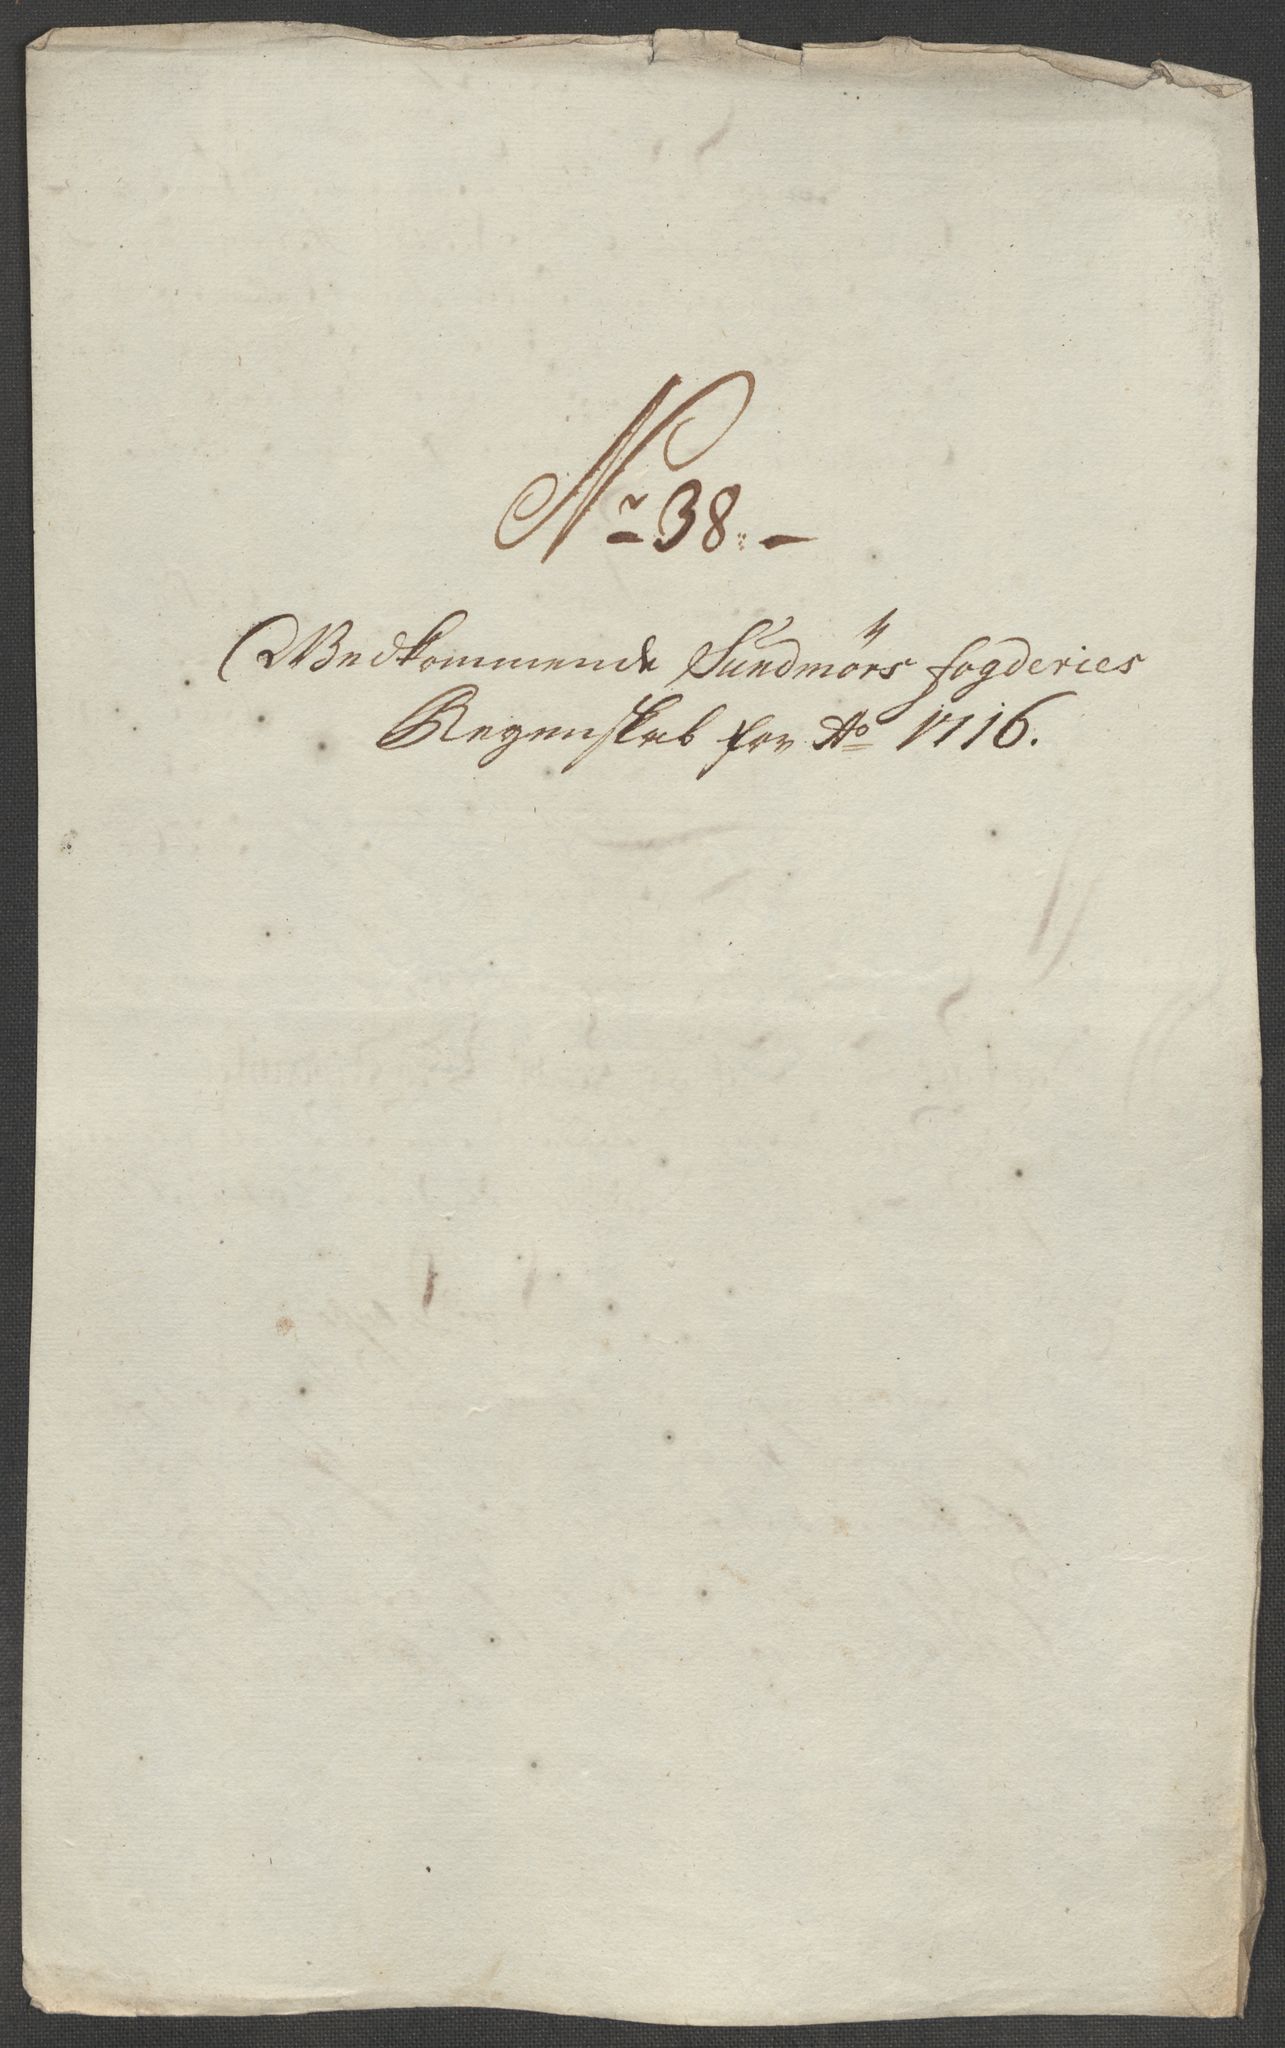 No 38.-
Vedkommende Sundmörs fogderies
Regenskab for Ao 1716.